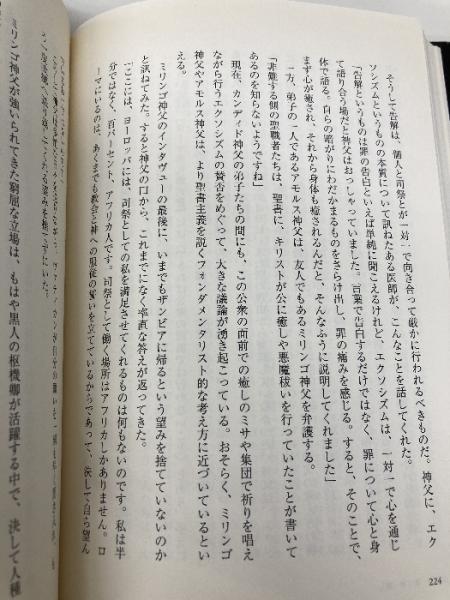 そうして告解は、個人と司祭とが一対一で向き合って厳かに行われるべきものだ。神父に、エク
ソシズムというものの本質について訊ねたある医師が、こんなことを話してくれた。
「告解というものは罪の告白といえば単純に聞こえるけれど、エクソシズムは、一対一で心を通じ
て語り合う場だと神父はおっしゃっていました。言葉で告白するだけではなく、罪について心と身
体で語る。自らの暗がりにわだかまるものをさらけ出し、罪の痛みを感じる。すると、そのことで、
まず心が癒され、それから身体も癒されるんだと、そんなふうに説明してくれました」
一方、弟子の一人であるアモルス神父は、友人でもあるミリンゴ神父を弁護する。
「非難する側の聖職者たちは、聖書に、キリストが公に癒しや悪魔祓いを行っていたことが書いて
あるのを知らないようですね」
現在、カンディド神父の弟子たちの間にも、この公衆の面前での癒しのミサや集団で祈りを唱え
ながら行うエクソシズムの賛否をめぐって、大きな議論が湧き起こっている。おそらく、ミリンゴ
神父やアモルス神父は、より聖書主義を説くファンダメンタリスト的な考え方に近づいているとい
える。
ミリンゴ神父のインタヴューの最後に、いまでもザンビアに帰るという望みを捨てていないのか
と訊ねてみた。すると神父の口から、これまでになく率直な答えが返ってきた。
「ここには、ヨーロッパには、司祭としての私を満足させてくれるものは何もないのです。私は半
分ではなく、百パーセント、アフリカ人です。司祭として働く場所はアフリカしかありません。ロ
ーマにいるのは、あくまでも教会と神への服従の誓いを立てているからであって、決して自ら望ん
ミリンゴ神父が強いられてきた窮屈な立場は、もはや黒人の枢機卿が活躍する中で、決して人種
224